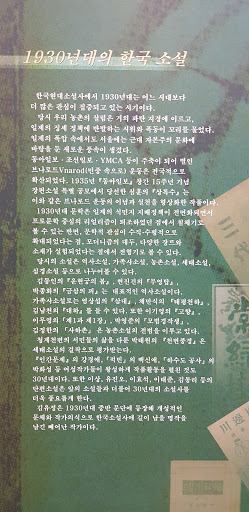 1930년대의 한국 소설
한국현대소설사에서 1930년대는 어느 시대보다
더 많은 관심이 집중되고 있는 시기이다.
당시 우리 농촌의 실정은 기화 파탄 지경에 이르고,
일제의 강제 정책에 반발하는 시위와 폭동이 꼬리를 물었다.
일제의 폭압 속에서도 서울에는 근대 자본주의 문화에
바탕을 둔 새로운 풍속이 생겼다.
동아일보 · 조선일보 · YMCA 등이 주축이 되어 벌인
브나로드Vnarod(민중 속으로) 운동은 전국적으로
확산되었다. 1935년 『동아일보』 창간 15주년 기념
장편소설 특별 공모에서 당선한 심훈의 『상록수』는
이와 같은 브나로드 운동의 이념과 실천을 형상화한 작품이다.
1930년대 문학은 일제의 식민지 지배정책이 전면화되면서
프로문학 중심의 리얼리즘이 퇴조하였던 점에서 침체기로
볼 수 있는 한편, 문학적 관심이 수적·수평적으로
확대되었다는 점, 모더니즘의 대두, 다양한 장르와
소재가 실험되었다는 점에서 전형기로 볼 수 있다.
당시의 소설은 역사소설, 가족사소설, 농촌소설, 세태소설,
심경소설 등으로 나누어볼 수 있다.
김동인의 『운현궁의 봄』, 현진건의 『무영탑』,
박종화의 『금삼의 피』는 대표적인 역사소설이다.
가족사소설로는 염상섭의 『삼대』, 채만식의 『태평천하』,
김남천의 『대하』를 들 수 있다. 또한 이기영의 『고향』,
이무영의 『제1과 제1장』, 박영준의 『모범경작생』,
김정한의 『사하촌』은 농촌소설의 전범을 이루고 있다.
청계천변의 서민들의 삶을 다룬 박태원의 『천변풍경』은
세태소설의 걸작으로 평가받는다.
『인간문제』의 강경애, 『적빈』의 백신애, 『하수도 공사』의
박화성 등 여성작가들이 왕성하게 작품활동을 펼친 것도
30년대이다. 또한 이상, 유진오, 이효석, 이태준, 김동리 등의
단편소설은 앞의 소설들과 더불어 30년대의 소설사를
더욱 풍요롭게 한다.
김유정은 1930년대 중반 문단에 등장해 개성적인
문체와 작가의식으로 한국소설사에 길이 남을 명작을
남긴 빼어난 작가이다.